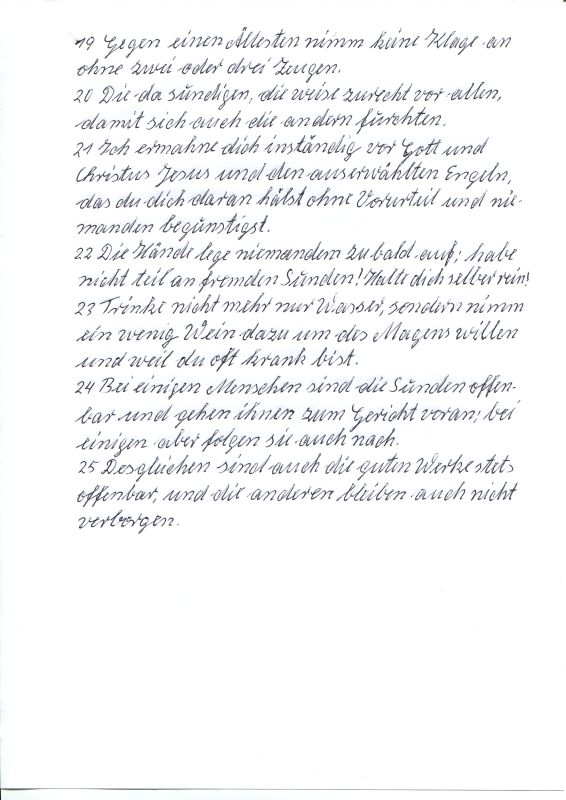 19 Gegen einen Ältesten nimm keine Klage an
ohne zwei oder drei Zeugen.
20 Die da sündigen, die weise zurecht vor allen,
damit sich auch die andern fürchten.
21 Ich ermahne dich inständig vor Gott und
Christus Jesus und den auserwählten Engeln,
das du dich daran hälst ohne Vorurteil und nie-
manden begünstigst.
22 Die Hände lege niemandem zu bald auf; habe
nicht teil an fremden Sünden! Halte dich selber rein!
23 Trinke nicht mehr nur Wasser, sondern nimm
ein wenig Wein dazu um des Magens willen
und weil du oft krank bist.
24 Bei einigen Menschen sind die Sünden offen-
bar und gehen ihnen zum Gericht voran; bei
einigen aber folgen sie auch nach.
25 Desgleichen sind auch die guten Werke stets
offenbar, und die anderen bleiben auch nicht
verborgen.